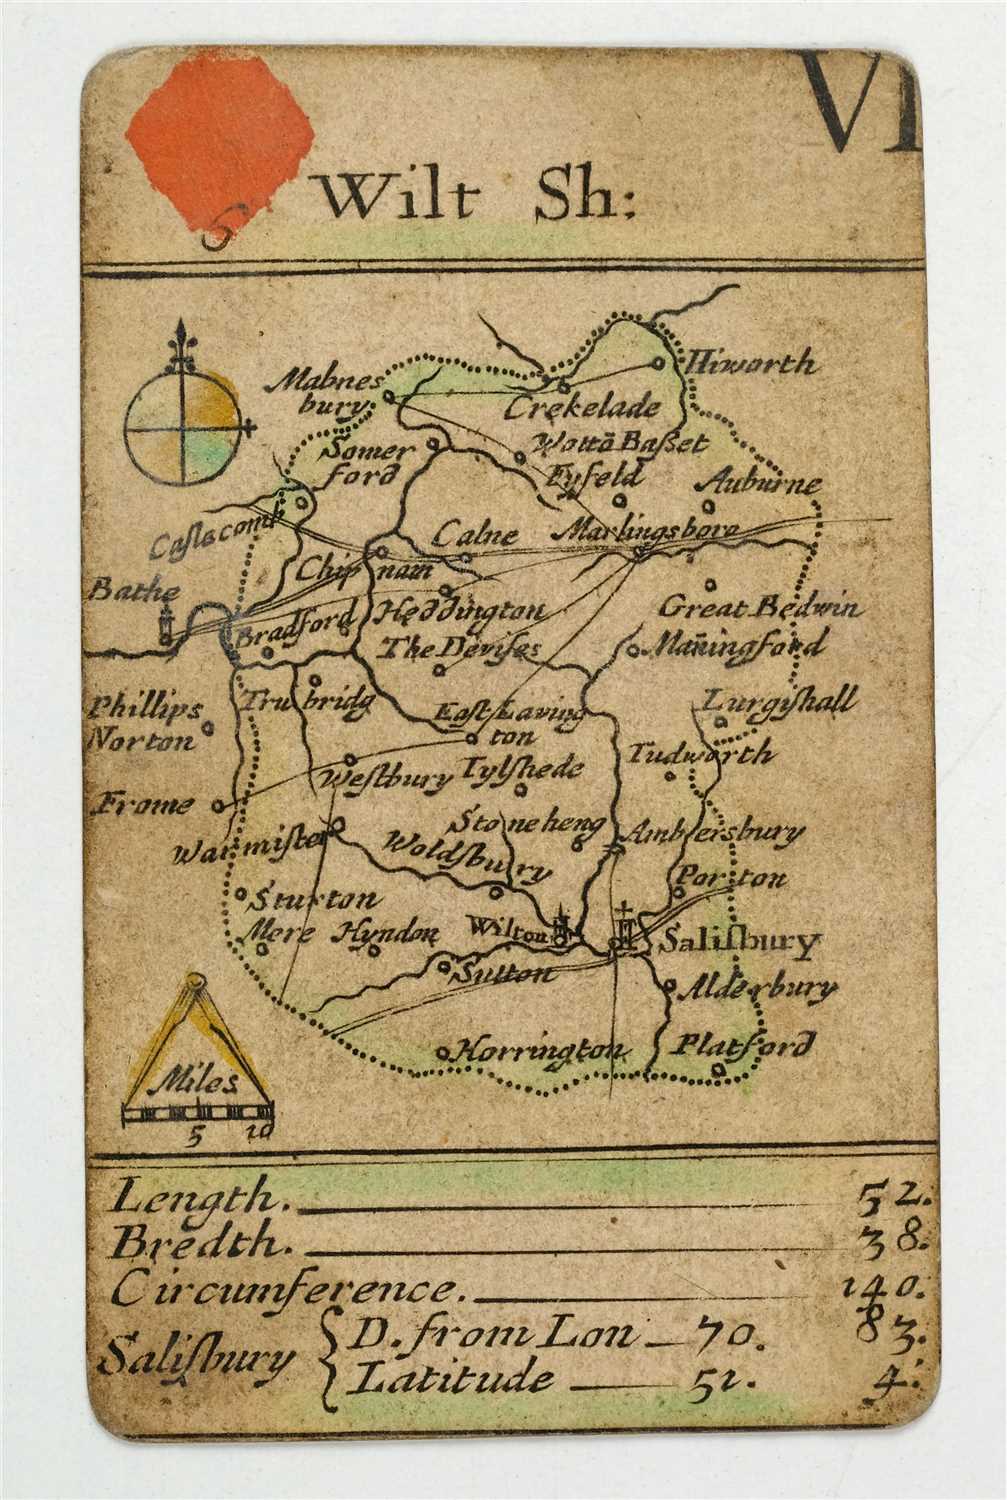 VI
6
Wilt Sh:
Hiworth
Mabnes
bury
Crekelade
Somer
ford
Wottō Baſset
Eyfeld
Auburne
Caſlecomb
Calne
Marlingsboro
Chipnam
Bathe
Bradford
Heddington
Great Bedwin
The Deviſes
Mañingford
Phillips
Norton
Trubridg
Eaſt Laving
ton
Lurgiſhall
Tudworth
Westbury
Tylſhede
Frome
Stoneheng
Ambersbury
Warmiſter
Woldſbury
Porton
Sturton
Mere
Hyndon
Wilton
Saliſbury
Sutton
Alderbury
Horrington
Platford
Miles
5 10
Length. 52.
Bredth. 38.
Circumference. 140.
Saliſbury
D. from Lon 70. 83.
Latitude 51. 4: